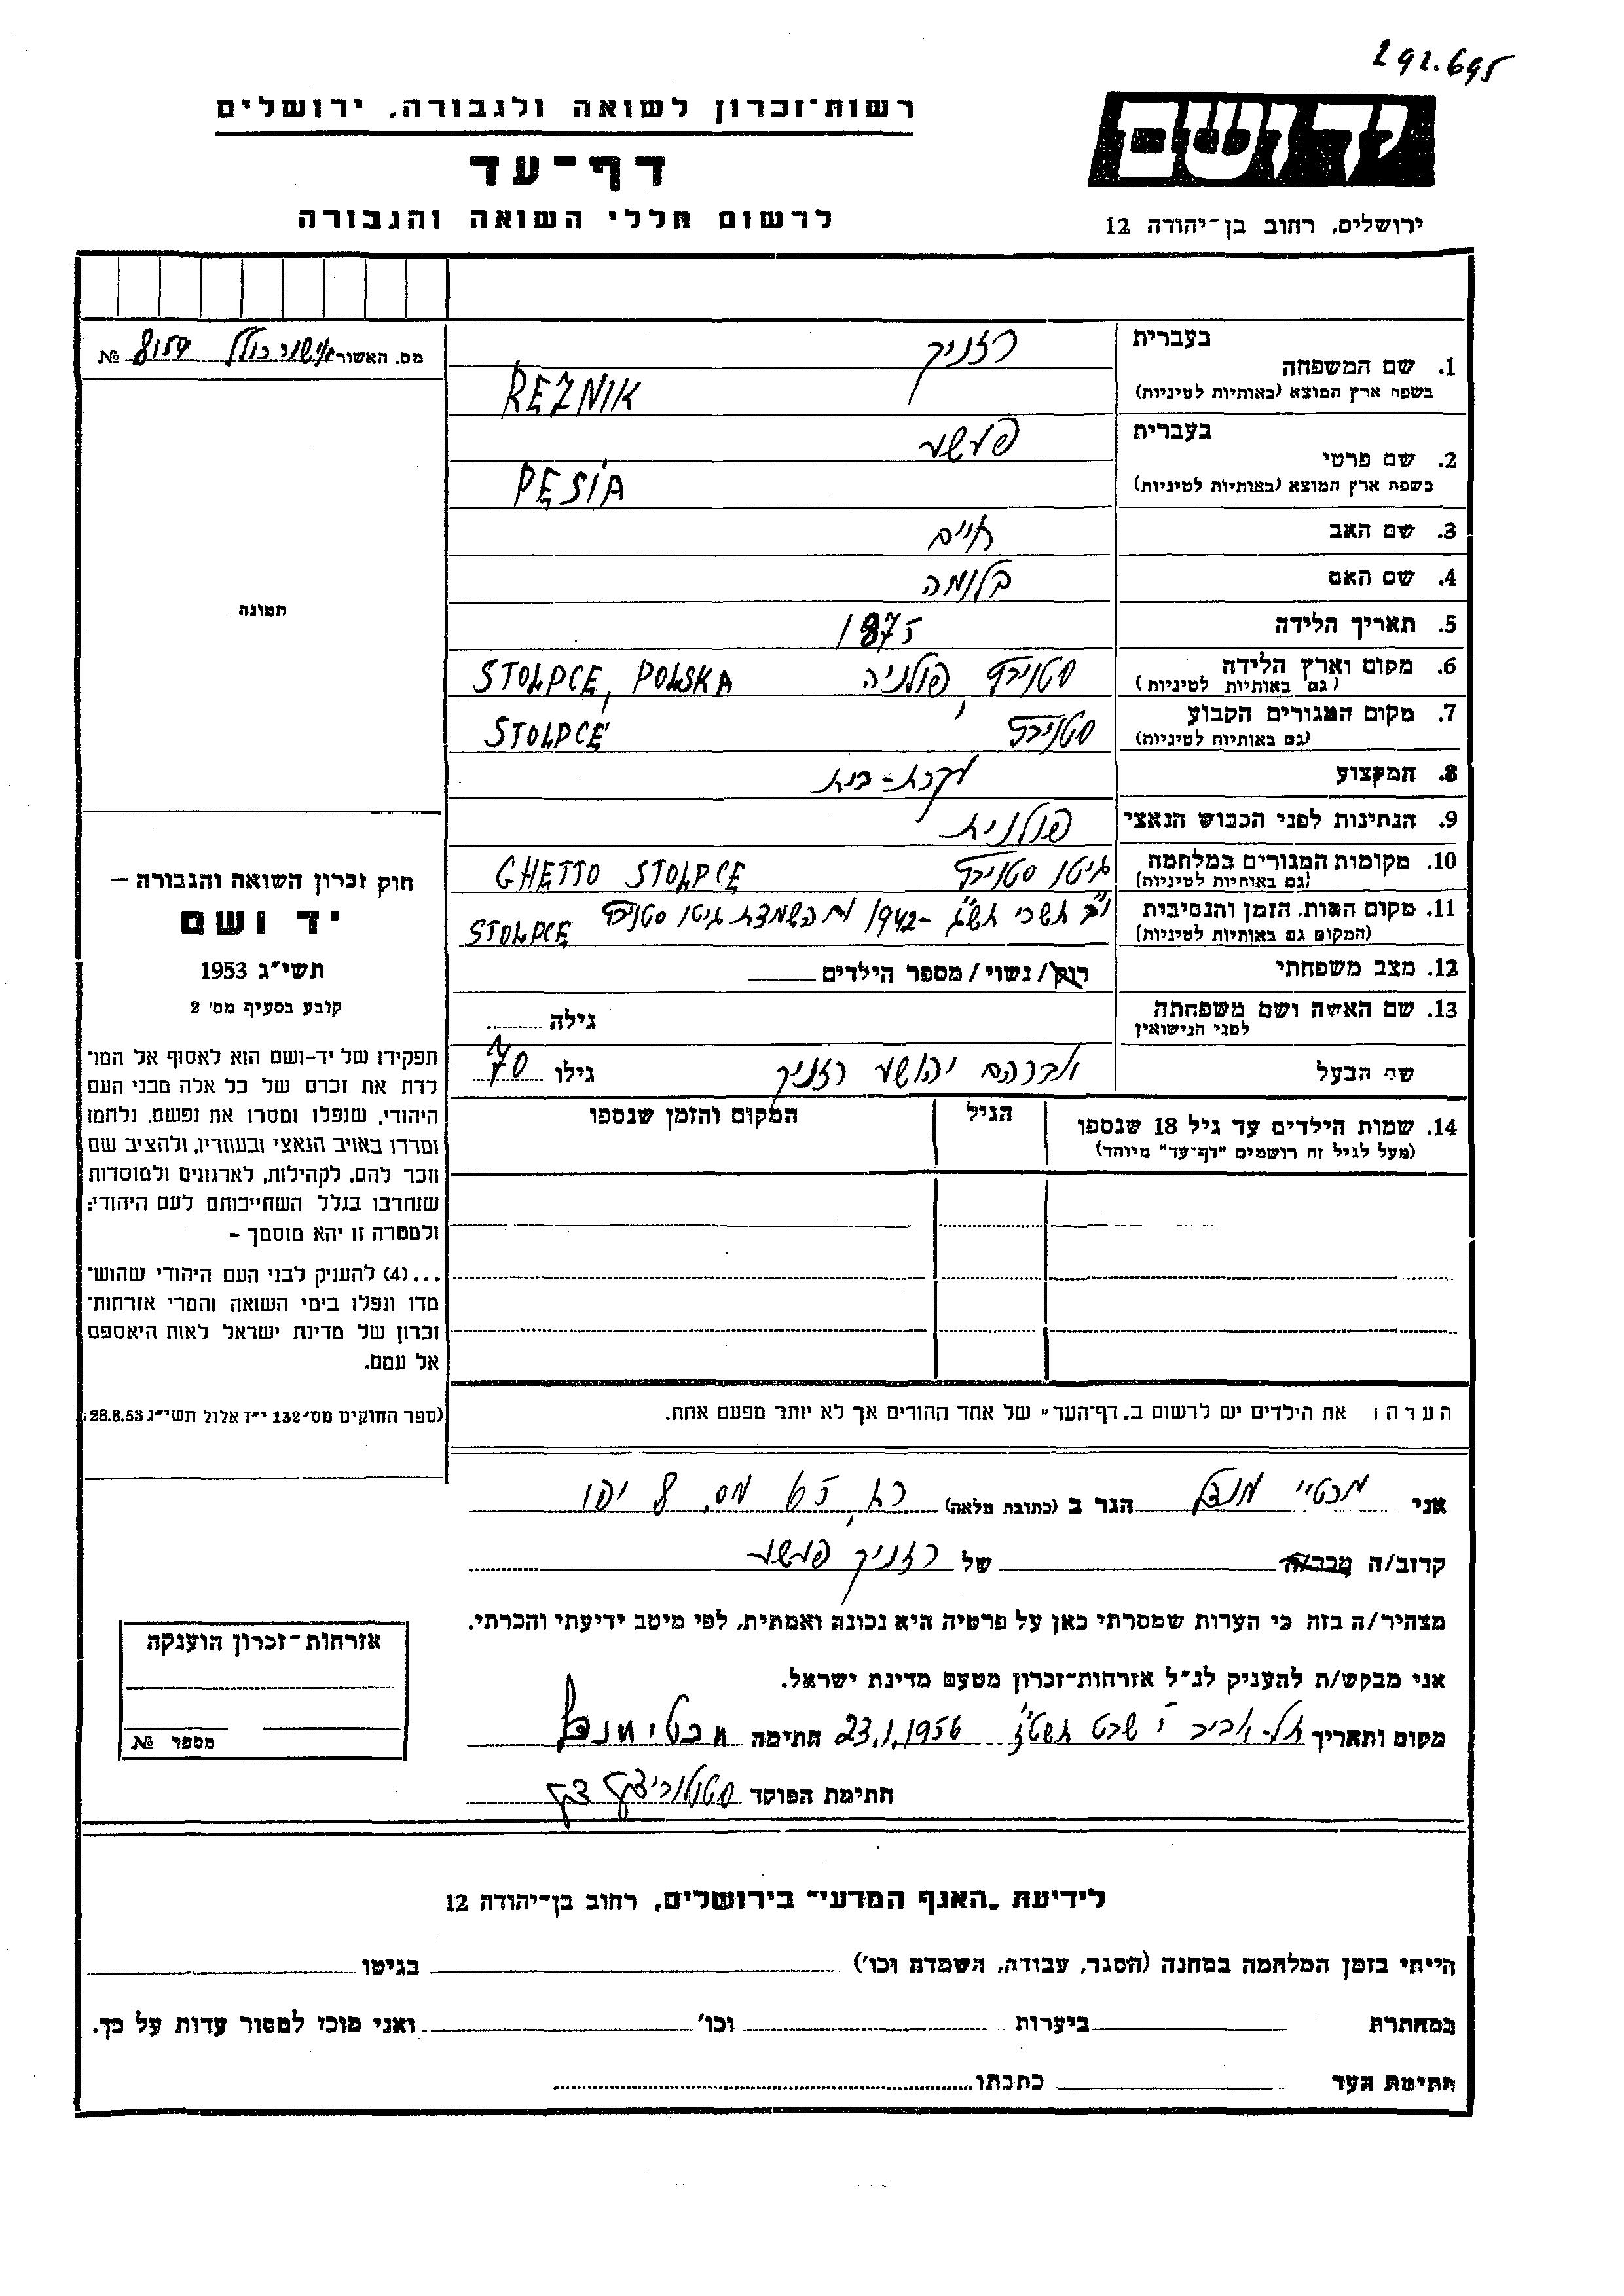 292.695
רשות־זכרון לשואה ולגבורה, ירושלים
דף־עד
לרשום חללי השואה והגבורה
יד ושם
ירושלים, רחוב בן־יהודה 12
מס. האשור № 
בעברית רזניק
1. שם המשפחה
בשפת ארץ המוצא (באותיות לטיניות) REZNIK
בעברית פעשע
2. שם פרטי
בשפת ארץ המוצא (באותיות לטיניות) PESIA
3. שם האב חיים
4. שם האם בלומה
5. תאריך הלידה 1875
6. מקום וארץ הלידה פולניה STOŁPCE, POLSKA
(גם באותיות לטיניות)
7. מקום המגורים הקבוע STOŁPCE
(גם באותיות לטיניות)
8. המקצוע עקרת-בית
9. הנתינות לפני הכבוש הנאצי פולנית
10. מקומות המגורים במלחמה גיטו GHETTO STOŁPCE
(גם באותיות לטיניות)
11. מקום המות, הזמן והנסיבות י"ב תשרי תש"ג - 1942 בהשמדת גיטו STOŁPCE
(המקום גם באותיות לטיניות)
12. מצב משפחתי רווק / נשוי / מספר הילדים
13. שם האשה ושם משפחתה גילה
לפני הנישואין
שם הבעל אברהם יהושע רזניק גילו 70
14. שמות הילדים עד גיל 18 שנספו הגיל המקום והזמן שנספו
(מעל לגיל זה רושמים "דף־עד" מיוחד)
הערה: את הילדים יש לרשום ב„דף־העד" של אחד ההורים אך לא יותר מפעם אחת.
תמונה
חוק זכרון השואה והגבורה –
יד ושם
תשי"ג 1953
קובע בסעיף מס' 2
תפקידו של יד-ושם הוא לאסוף אל המו־
לדת את זכרם של כל אלה מבני העם
היהודי, שנפלו ומסרו את נפשם, נלחמו
ומרדו באויב הנאצי ובעוזריו, ולהציב שם
וזכר להם, לקהילות, לארגונים ולמוסדות
שנחרבו בגלל השתייכותם לעם היהודי;
ולמטרה זו יהא מוסמך –
...(4) להעניק לבני העם היהודי שהוש־
מדו ונפלו בימי השואה והמרי אזרחות־
זכרון של מדינת ישראל לאות היאספם
אל עמם.
(ספר החוקים מס' 132 י"ז אלול תשי"ג 28.8.53)
אני הגר ב (כתובת מלאה) 65 מס. 8 יפו
קרוב/ה מכר/ה של רזניק פעשע
מצהיר/ה בזה כי העדות שמסרתי כאן על פרטיה היא נכונה ואמתית, לפי מיטב ידיעתי והכרתי.
אני מבקש/ת להעניק לנ"ל אזרחות-זכרון מטעם מדינת ישראל.
מקום ותאריך תל-אביב י' שבט תשט"ז 23.1.1956 חתימה
חתימת הפוקד
אזרחות־זכרון הוענקה
מספר №
לידיעת „האגף המדעי" בירושלים, רחוב בן־יהודה 12
הייתי בזמן המלחמה במחנה (הסגר, עבודה, השמדה וכו') בגיטו
במחתרת ביערות וכו' ואני מוכן למסור עדות על כך.
חתימת העד כתבתו